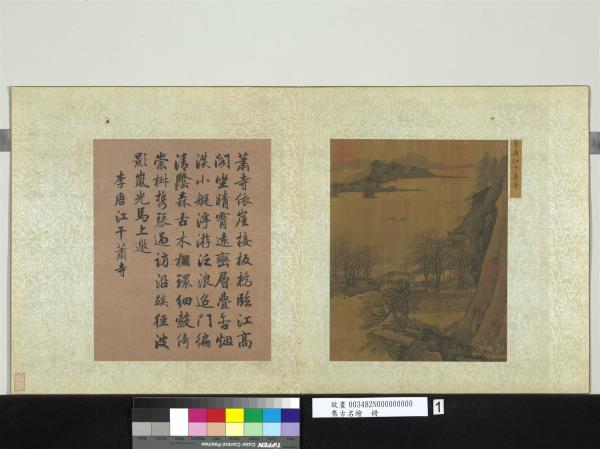 蕭寺依崖接板橋臨江高
閣坐晴霄遠巒層疊含烟
淡小艇浮游泛浪迢門徧
清蔭森古木欄環細縠倚
崇樹携琴過訪沿蹊徑波
影嵐光馬上邀
李唐江干蕭寺
李唐江干蕭寺
故畫 003482N000000000
集古名繪 冊
1
TIFFEN Color Control Patches